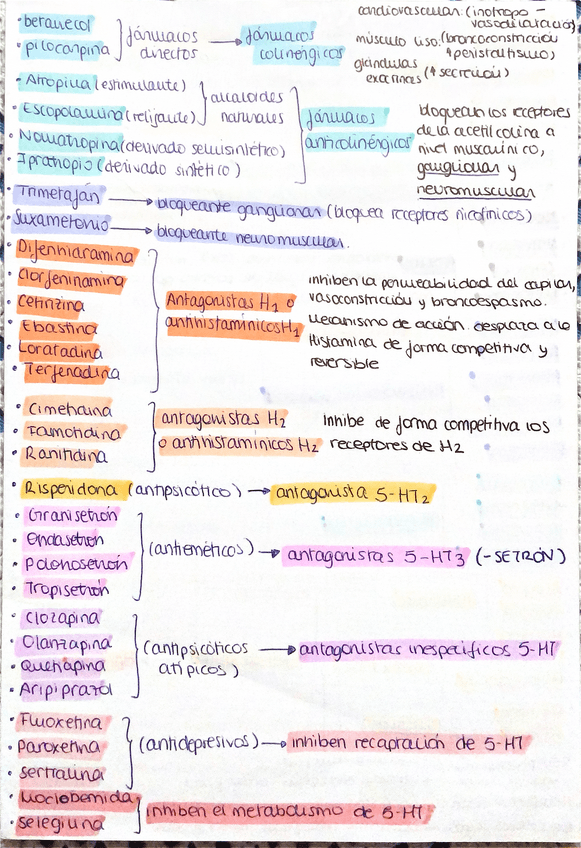 • betanecol
• pilocarpina
fármacos directos → fármacos colinérgicos
cardiovascular: (inotropo - vasodilatación)
músculo liso: (broncoconstricción ↑ peristaltismo)
glándulas exocrinas (↑ secreción)
• Atropina (estimulante)
• Escopolamina (relajante)
alcaloides naturales
• Homatropina (derivado semisintético)
• Ipratropio (derivado sintético)
fármacos anticolinérgicos
bloquean los receptores
de la acetilcolina a
nivel muscarínico,
ganglionar y
neuromuscular
Trimetafán → bloqueante ganglionar (bloquea receptores nicotínicos)
• Suxametonio → bloqueante neuromuscular.
• Difenhidramina
• Clorfeninamina
• Cetirizina
• Ebastina
• Loratadina
• Terfenadina
Antagonistas H1 o
antihistamínicos H1
inhiben la permeabilidad del capilar,
vasoconstricción y broncoespasmo.
Mecanismo de acción: desplaza a la
Histamina de forma competitiva y
reversible
• Cimetidina
• Famotidina
• Ranitidina
antagonistas H2
o antihistamínicos H2
Inhibe de forma competitiva los
receptores de H2
• Risperidona (antipsicótico) → antagonista 5-HT2
• Granisetrón
• Ondasetrón
• Palonosetrón
• Tropisetrón
(antieméticos) → antagonistas 5-HT3 (-SETRÓN)
• Clozapina
• Olanzapina
• Quetiapina
• Aripiprazol
(antipsicóticos atípicos) → antagonistas inespecíficos 5-HT
• Fluoxetina
• Paroxetina
• Sertralina
(antidepresivos) → inhiben recaptación de 5-HT
• Moclobemida
• Selegilina
inhiben el metabolismo de 5-HT